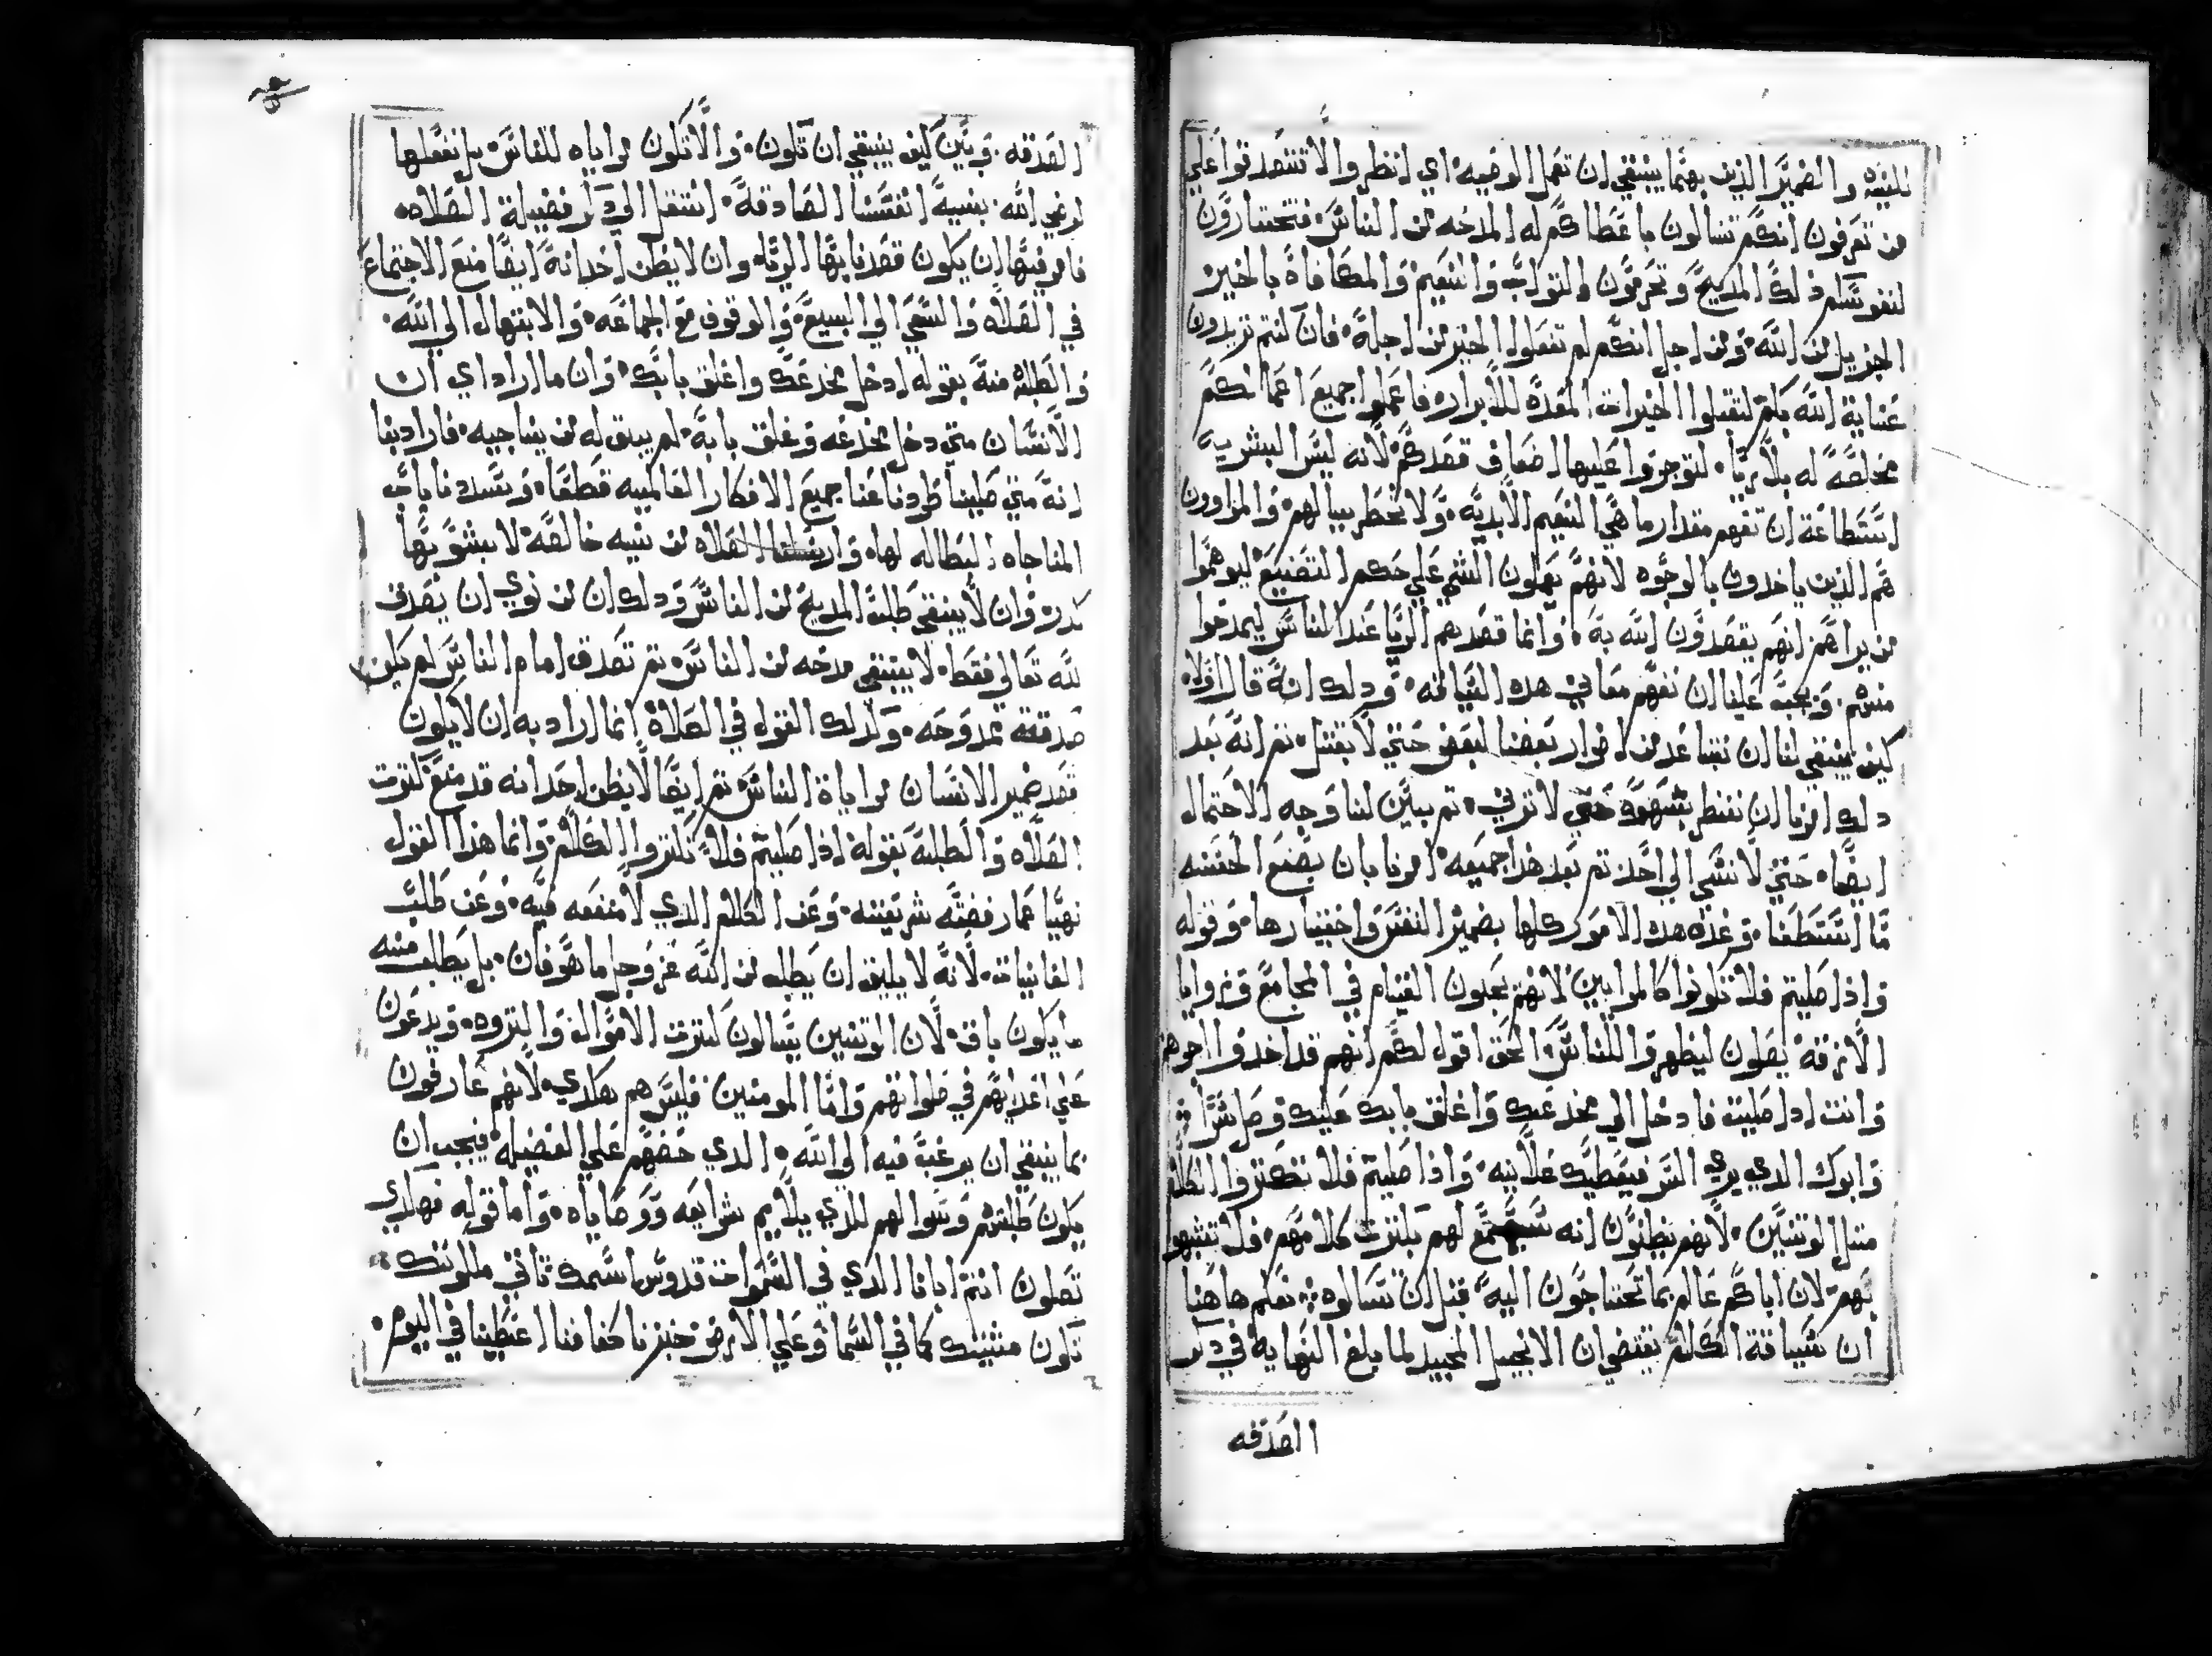 للنيه والضمير الذين بهما ينبغي ان تعمل الوصيه اي انظروا لا تتصدقوا علي
من تعرفون انكم تسالون باعطاكم له المدحه من الناس فتختارون
لنفوسكم ذلك المديح وتحرمون الثواب والنعيم والمكافاة بالخير
الجزيل من الله ومن اجل انكم لم تفعلوا الخير من اجله فان كنتم تريدون
عناية الله بكم لتقبلوا الخيرات المعده للابرار فاعملوا جميع اعمالكم
مخلصة له بلا ريا لتوجروا عليها اضعاف قصدكم لانه ليس البشرية
استطاعة ان تفهم مقدار ما هي النعيم الابديه ولا يخطر ببالهم والمراوون
هم الذين ياخدون بالوجوه لانهم يعملون الشي علي حكم التصنيع ليوهموا
من يراهم انهم يقصدون الله به وانما قصدهم الريا عند الناس ليمدحوا
منهم ويجب علينا ان نفهم معاني هده السياقه ودلك انه قال اولا
كيف ينبغي لنا ان نتباعد من اضرار بعضنا لبعض حتي لا نقتل تم انه بعد
دلك امرنا ان ننظر بشهوة حتي لا نزني تم يبين لنا وجه الاحتمال
ايضا حتي لا نسي الي احد تم بعد هدا جميعه امرنا بان نصنع الحسنه
ما استطعنا وعده هده الامور كلها بضمير النفس واختيارها وقوله
واذا صليتم فلا تكونوا كالمرايين لانهم يحبون القيام في المجامع وزوايا
الازقة يصلون ليظهروا للناس والحق اقول لكم انهم قد اخدوا اجرهم
وانت ادا صليت فادخل الي مخدعك واغلق بابك عليك وصل سرا
وابوك الدي يري السر فيعطيك علانيه واذا صليتم فلا تكتروا الكلام
متل الوتنيين لانهم يظنون انه يسمع لهم بكترت كلامهم فلا تتشبهوا
بهم لان اباكم عالم بما تحتاجون اليه قبل ان تسالوه نعلم هاهنا
ان سياقة الكلام تقتضي ان الانجيل المجيد لما بلغ النهاية في دكر
الصدقه
الصدقه وبين كيف ينبغي ان تكون والا تكون مراياه للناس بل نفعلها
لرضي الله بنية انفسنا الصادقة انتقل الي دكر فضيلة الصلاه
فامر فيها ان يكون قصدنا بها الريا وان لا يظن احدا انه ايضا منع الاجتماع
في الصلاه والسعي الي البيع والوقوف مع الجماعه والابتهال الي الله
والطلبة منه بقوله ادخل مخدعك واغلق بابك وان ما اراد اي ان
الانسان متي دخل مخدعه وغلق بابه لم يبق له من يناجيه فاراد بنا
انه متي صلينا طردنا عنا جميع الافكار العالميه قطعا ونسد باب
المناجاه البطاله لها وارسلنا الصلاه من نيه خالصة لا يشوبها
كدر وان لا ينبغي طلبة المديح من الناس ودلك ان من نوي ان يصدق
لله تعالي فقط لا يبتغي مدحه من الناس تم تصدق امام الناس لم يكن
صدقته ممدوحه وكدلك القول في الصلاة انما اراد به ان لا يكون
قصد ضمير الانسان مراياة الناس تم ايضا لا يظن احد انه قد منع كترت
الصلاه والطلبة بقوله اذا صليتم فلا تكتروا الكلام وانما هذا القول
نهيا عما رفضته شريعته وعن الكلام الدي لا منفعه فيه وعن طلب
الفانيات لانه لا يليق ان يطلب من الله عز وجل ما هو فان بل يطلب منه
ما يكون باق لان الوتنيين يسالون كترت الاموال والتروه ويدعون
علي اعدايهم في صلواتهم واما المومنين فليس هم هكدي لانهم عارفون
بما ينبغي ان يرغب فيه الي الله الدي حضهم علي الفضيلة فيجب ان
يكون طلبتهم وسوالهم للذي يلايم شرايعه ووصاياه واما قوله فهكدي
تصلون انتم ابانا الدي في السموات قدوس اسمك تاتي ملكوتك
تكون مشيتك كما في السما وعلي الارض خبزنا كفافنا اعطينا في اليوم